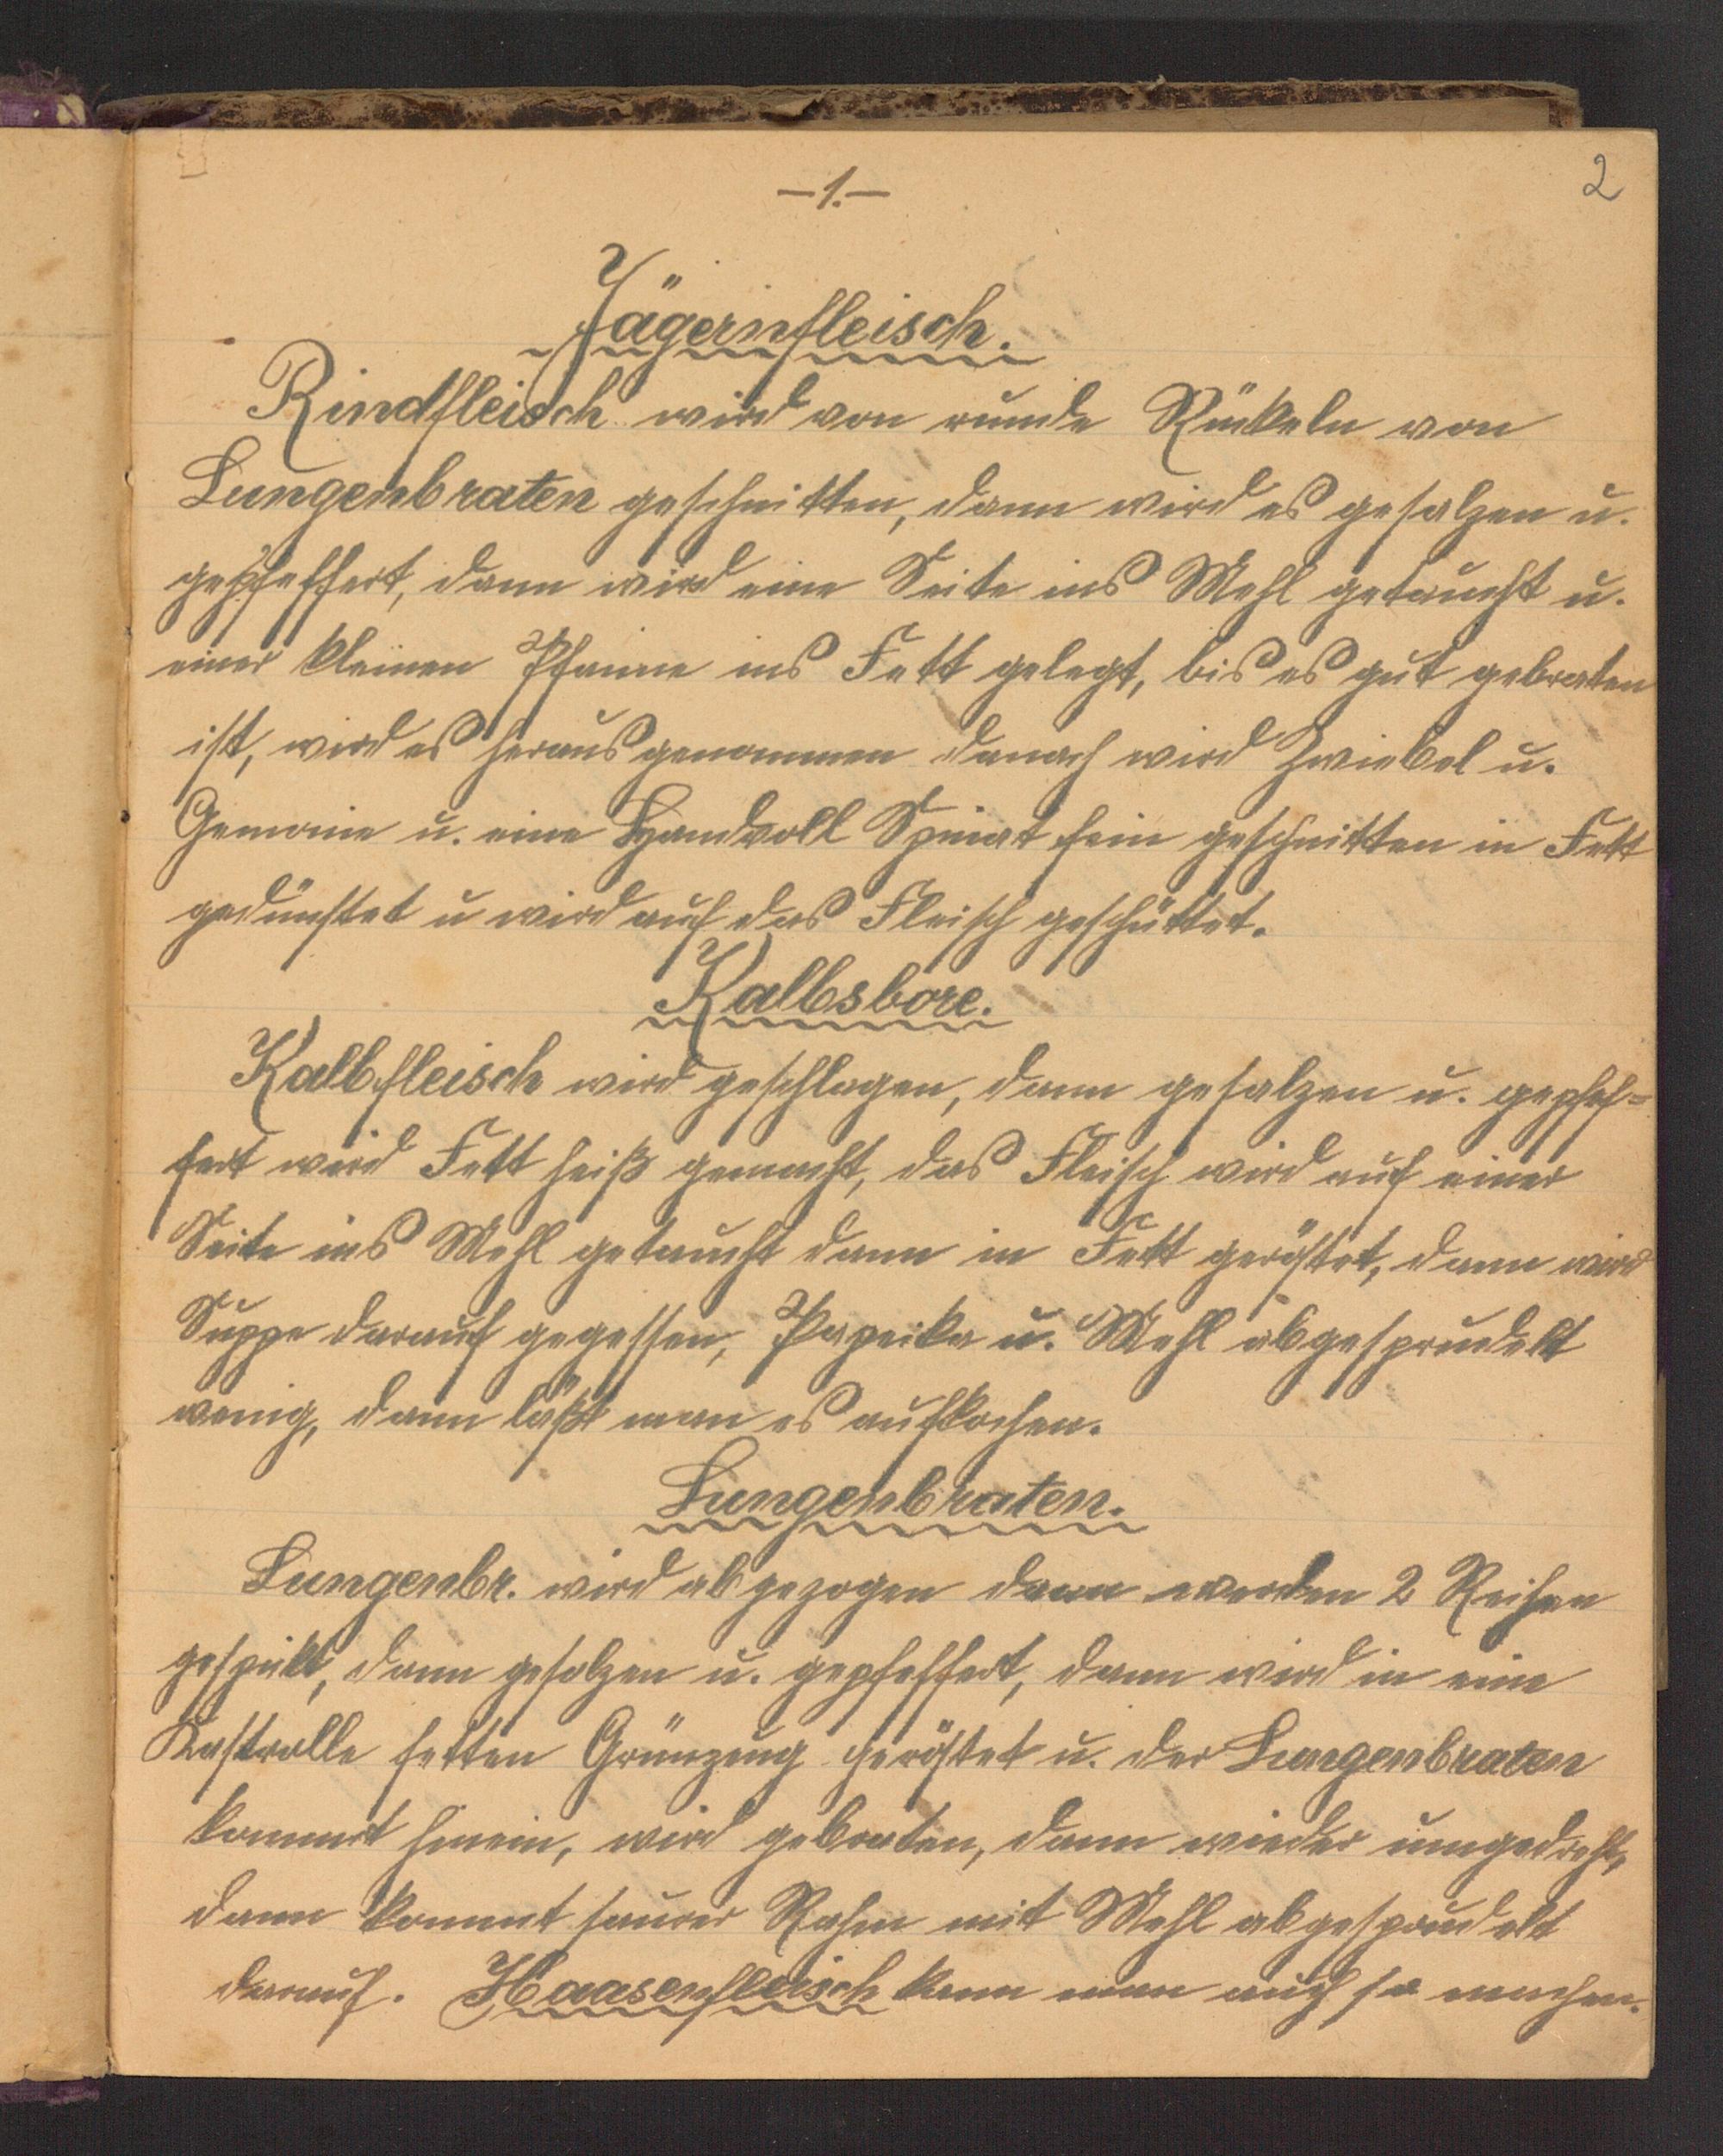 —1.—
2
Jägernfleisch.
Rindfleisch wird von runde Stückeln von
Lungenbraten geschnitten, dann wird es gesalzen u.
gepfeffert, dann wird eine Seite ins Mehl getaucht u.
einer kleinen Pfanne ins Fett gelegt, bis es gut gebraten
ist, wird es herausgenommen danach wird Zwiebel u.
u. eine Handvoll Spinat fein geschnitten in Fett
gedünstet u wird auf das Fleisch geschüttet.
Kalbsbore.
Kalbfleisch wird geschlagen, dann gesalzen u. gepfef=
fert wird Fett heiß gemacht, das Fleisch wird auf einer
Seite ins Mehl getaucht dann in Fett geröstet, dann wird
Suppe darauf gegessen, Papeika u. Mehl abgesprudelt
wenig, dann läßt man es aufkochen.
Lungenbraten.
Lungenbr. wird abgezogen dann werden 2 Reihen
gespikt, dann gesalzen u. gepfeffert, dann wird in eine
Kastrolle fetten Grünzeug geröstet u. der Lungenbraten
kommt hinein, wird gebraten, dann wieder umgedreht,
dann kommt saurer Rahm mit Mehl abgesprudelt
darauf. Haasenfleisch kann man auch so machen.